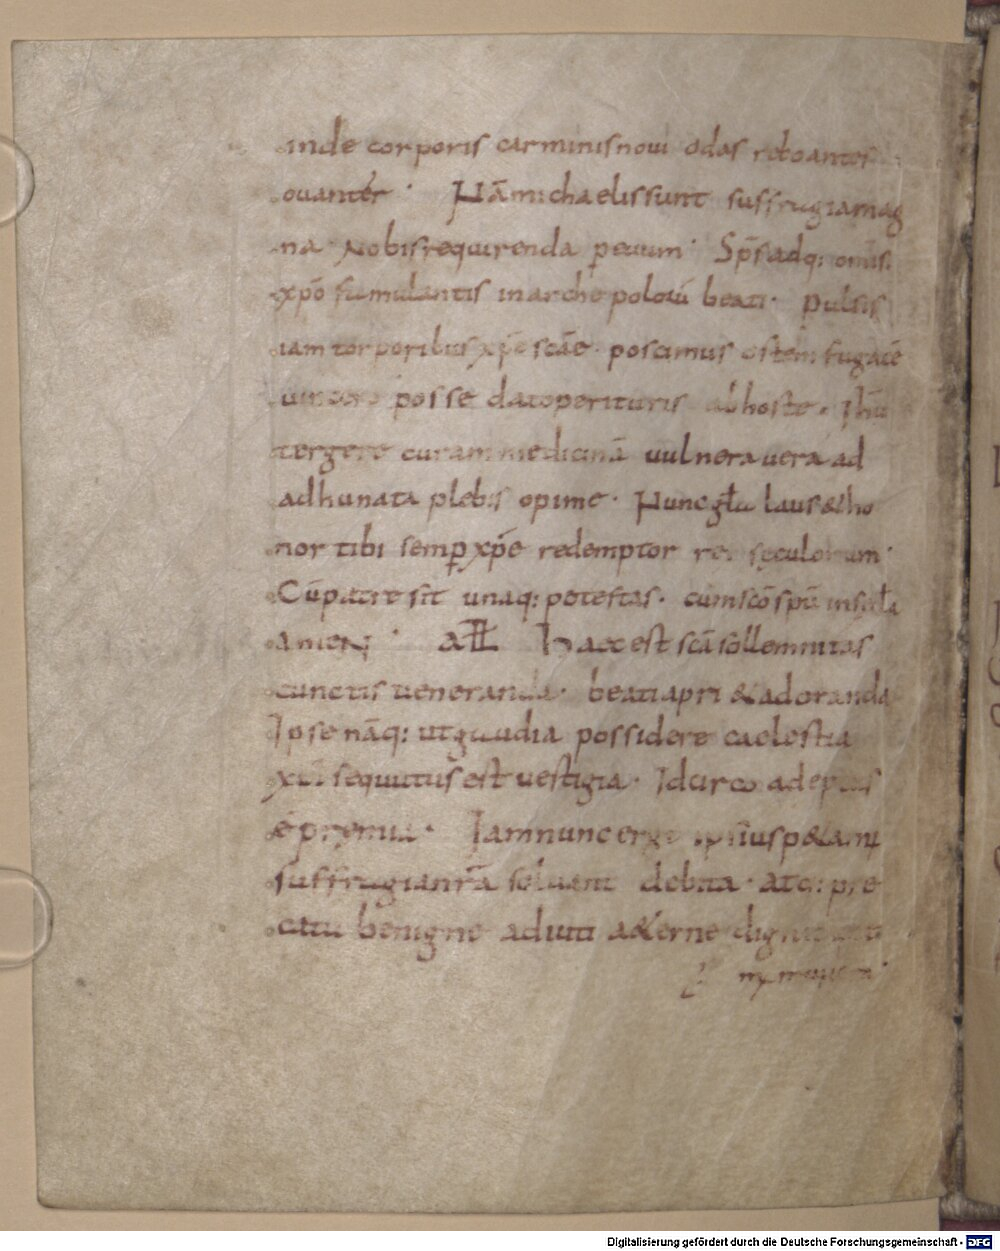 inde corporis carminis noui odas reboantes
ouanter · Hā michaelis sunt suffragia mag
na · Nobis requirenda p̱ euum · Sp̄s adq: omīs
xp̄o famulantis in arche polorū beati · Pulsis
iam torporibus xp̄e scāe · poscimus ostem fugacē
uincere posse dato perituris ab hoste · Ihū
tergere curam medicinā uulnera uera ad
adhunata plebis opime · Hunc gła laus & ho
nor tibi semp̱ xp̄e redemptor seculorum ·
Cū patre sit unaq: potestas · cum scō spū in sęcła
ameN · aŁŁ Haec est scā sollemnitas
cunctis ueneranda · beati apri & adoranda
Ipse nāq: ut gaudia possidere caelestia
xp̄i sequutus est uestigia · Idcirco adeptus
ē premia · Iam nunc ergo ipsius p&ant
suffragia nr̄a soluant debita · atq: pre
catu benigno aduti a&erne